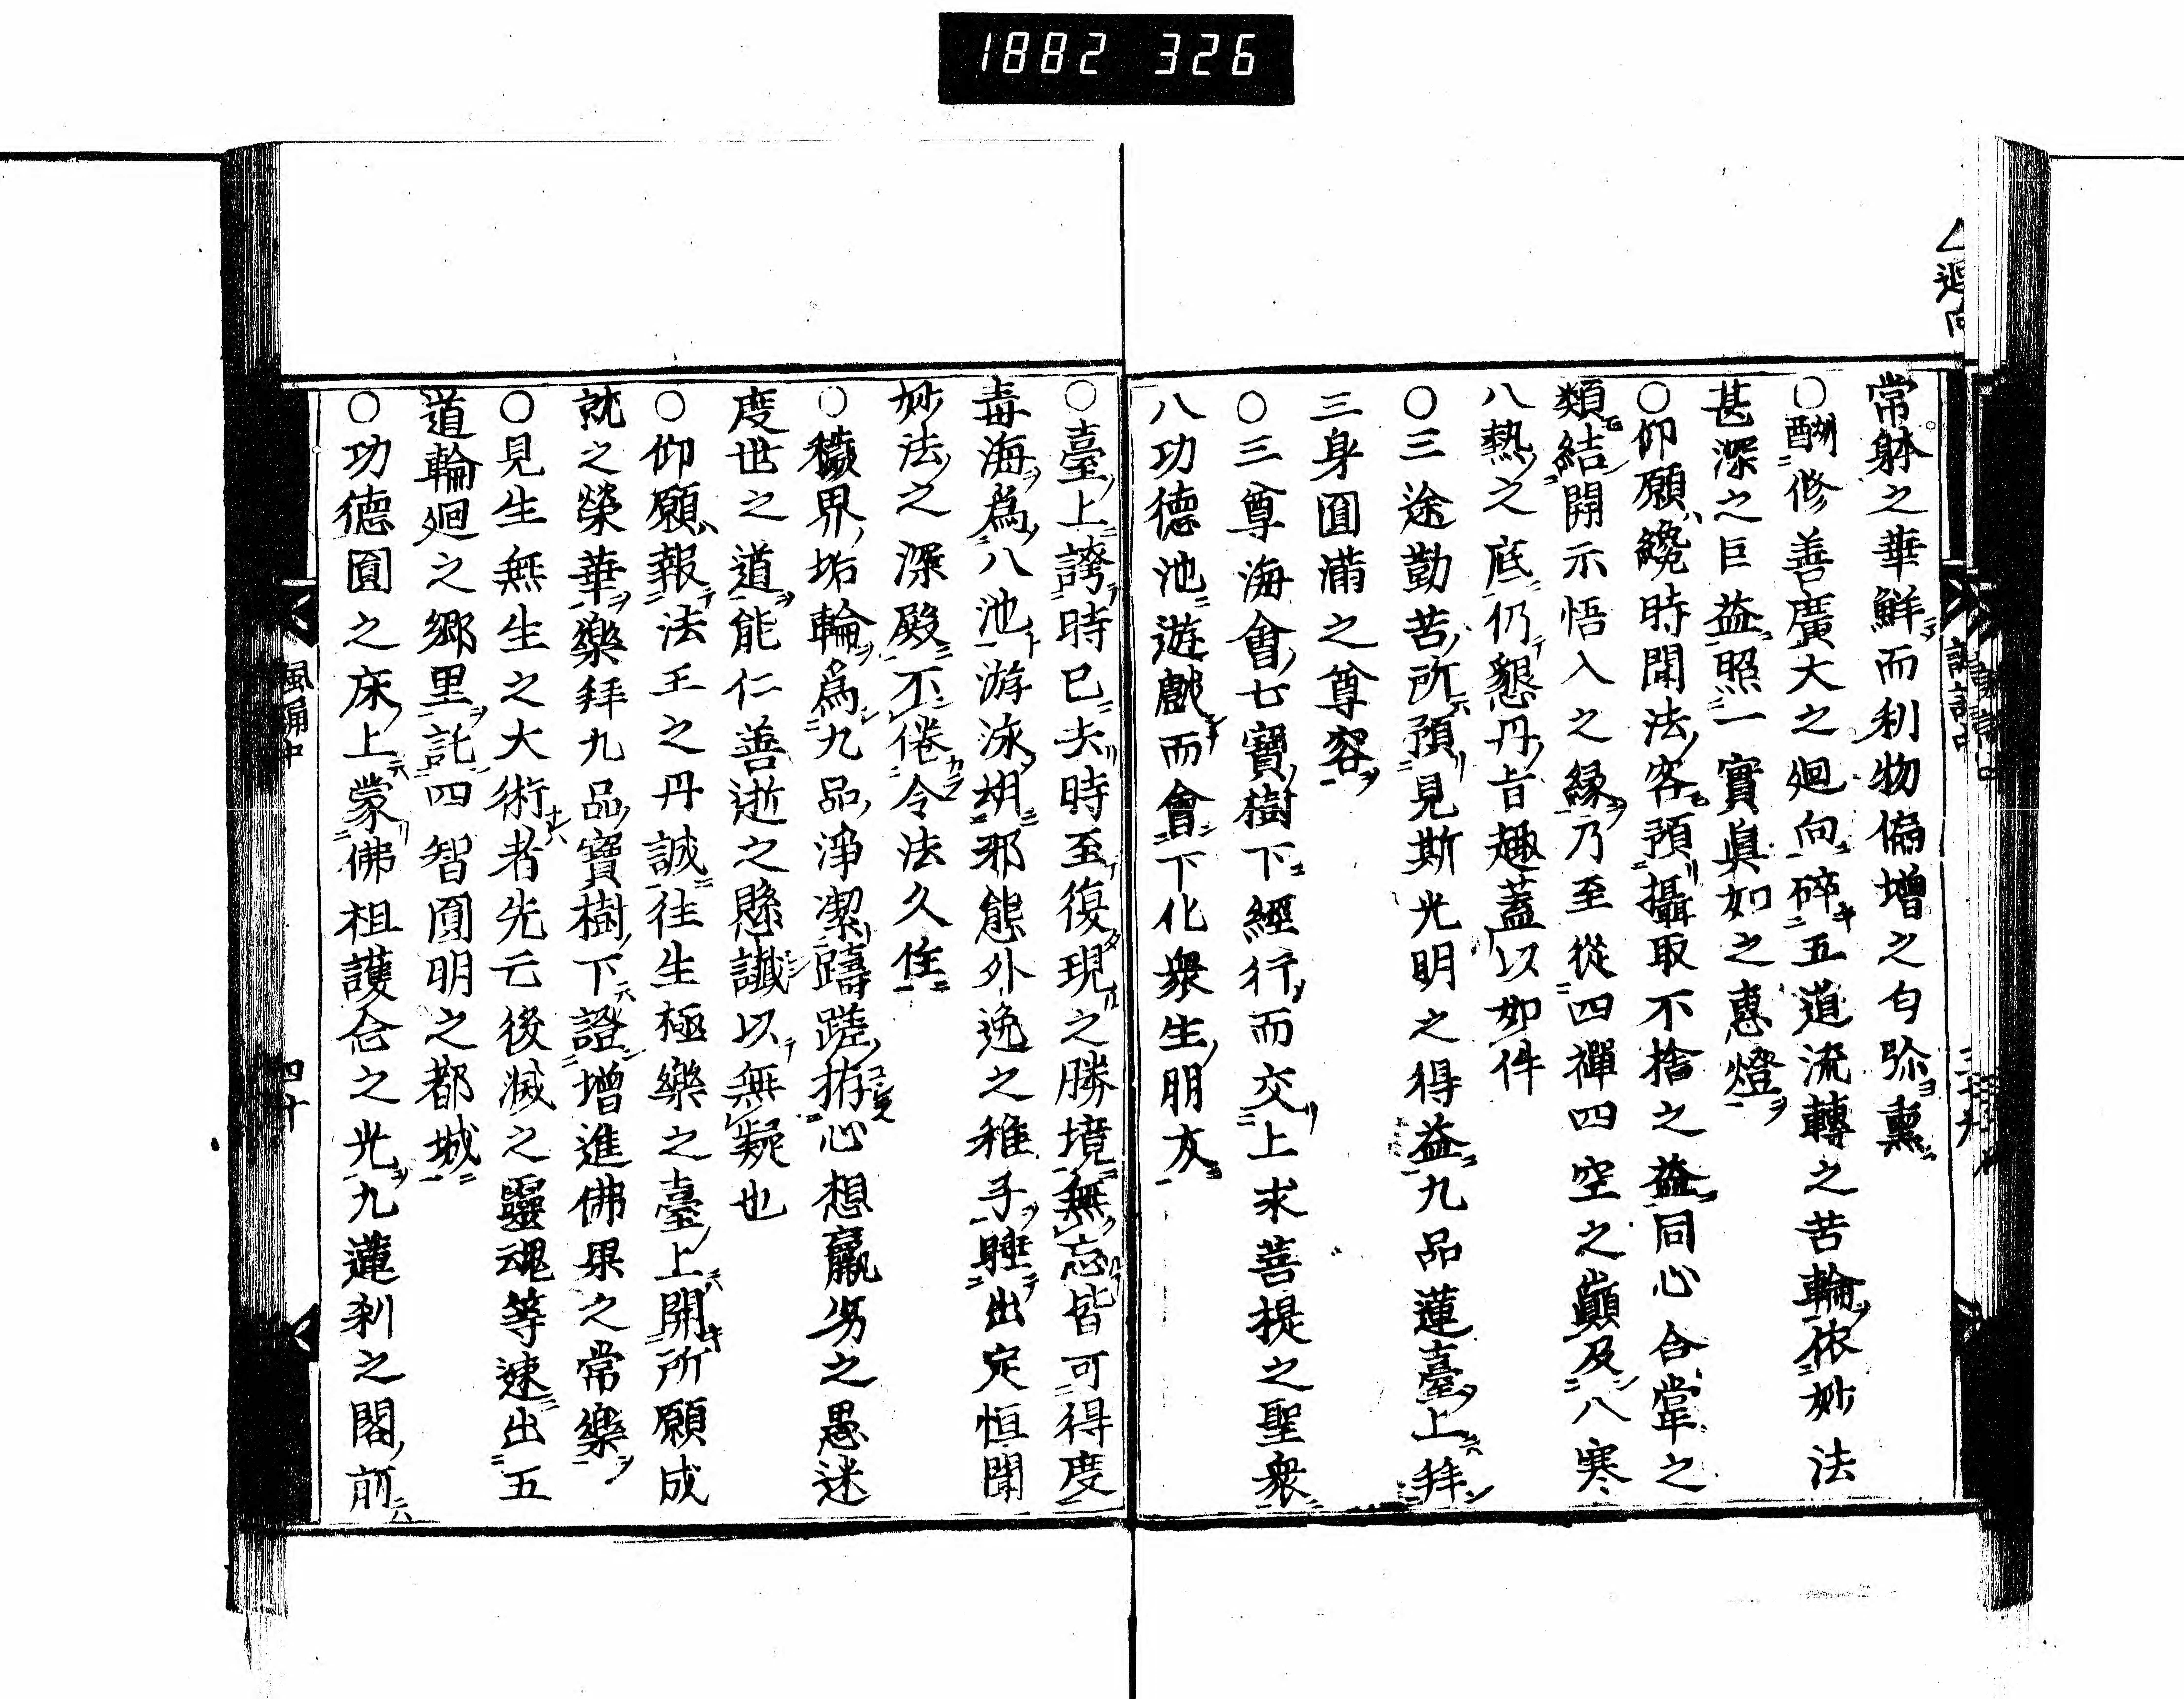 1882 326
△廻向
常躰之華鮮而利物偏增之匂弥熏
○酬修善廣大之廻向碎五道流轉之苦輪依妙法
甚深之巨益照一實眞如之惠燈
○仰願纔時聞法客預攝取不捨之益同心合掌之
類結開示悟入之縁乃至從四禪四空之巓及八寒
八熱之底仍懇丹旨趣蓋以如件
○三途勤苦所預見斯光明之得益九品蓮臺上拜
三身圓滿之尊容
○三尊海會七寶樹下經行而交上求菩提之聖衆
八功德池遊戲而會下化衆生朋友
○臺上誇時已去時至復現之勝境無忘皆可得度
毒海爲八池游泳胡邪態外逸之稚子睡出定恒聞
妙法之深殿不倦令法久住
○穢界垢輪爲九品淨潔躊蹉拵心想羸劣之愚迷
度世之道能仁善逝之懸讖以無疑也
○仰願報法王之丹誠往生極樂之臺上開所願成
就之榮華樂拜九品寶樹下證增進佛果之常樂
○見生無生之大術者先亡後滅之靈魂等速出五
道輪廻之郷里託四智圓明之都城
○功德圓之床上蒙佛祖護念之光九蓮刹之閣前
四十